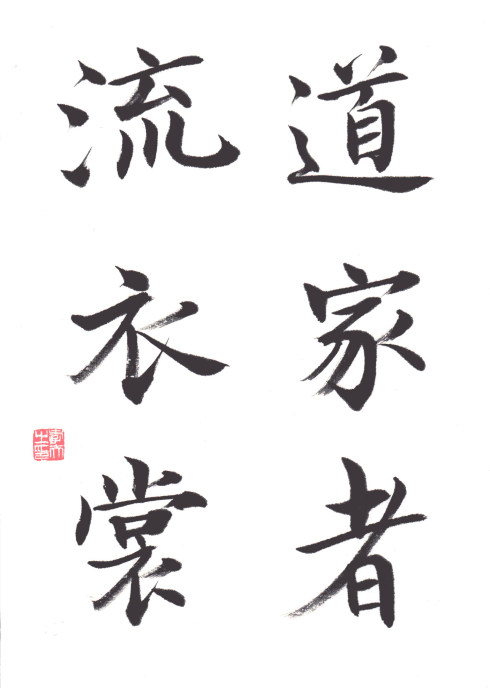 道家者
流衣裳